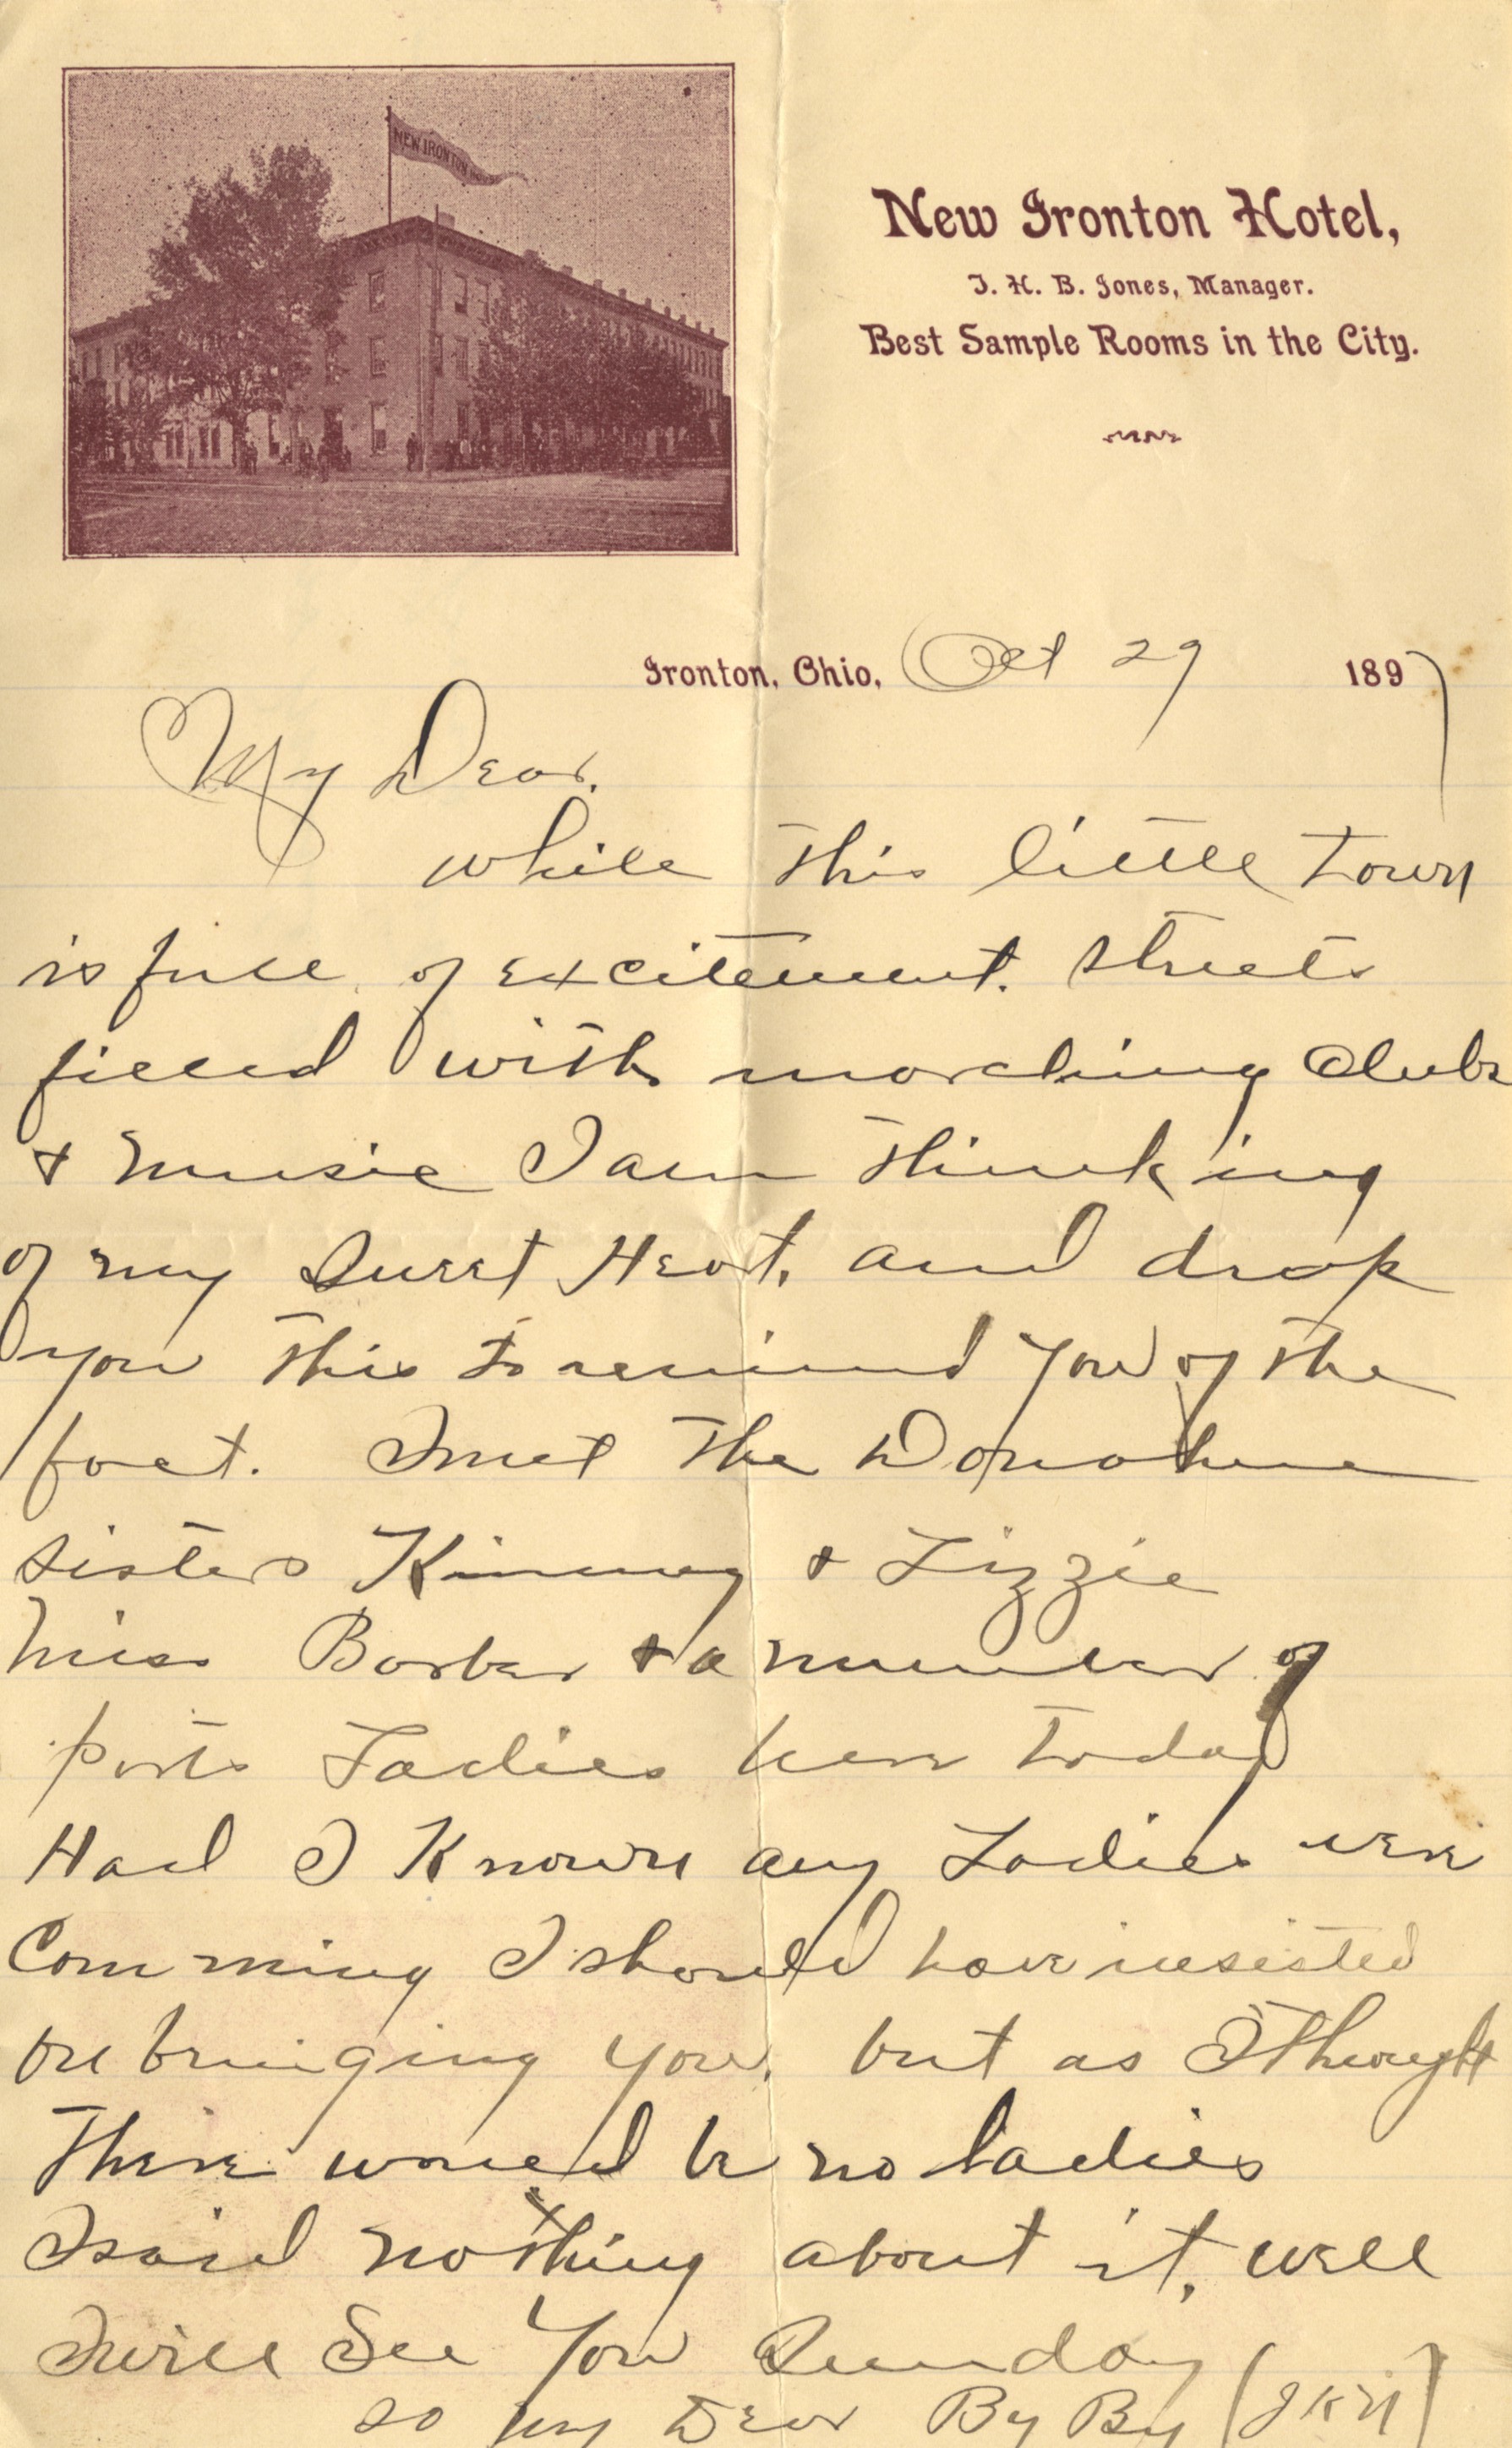 NEW IRONTON
New Ironton Hotel,
J. H. B. Jones, Manager.
Best Sample Rooms in the City.
Ironton, Ohio, Oct 29 1897
My Dear.
while this little town
is full of excitement. streets
filled with marching Clubs
& music I am thinking
of my Sweet Heart, and drop
you this to remind you of the
fact. I met the Donohue
sisters & Lizzie
Miss Barber & a number of
ports Ladies here today
Had I Known any Ladies were
Comming I should have insisted
on bringing you, but as I thought
There would be no ladies
I said nothing about it, well
I will See You Sunday
so my Dear By By (JKN)